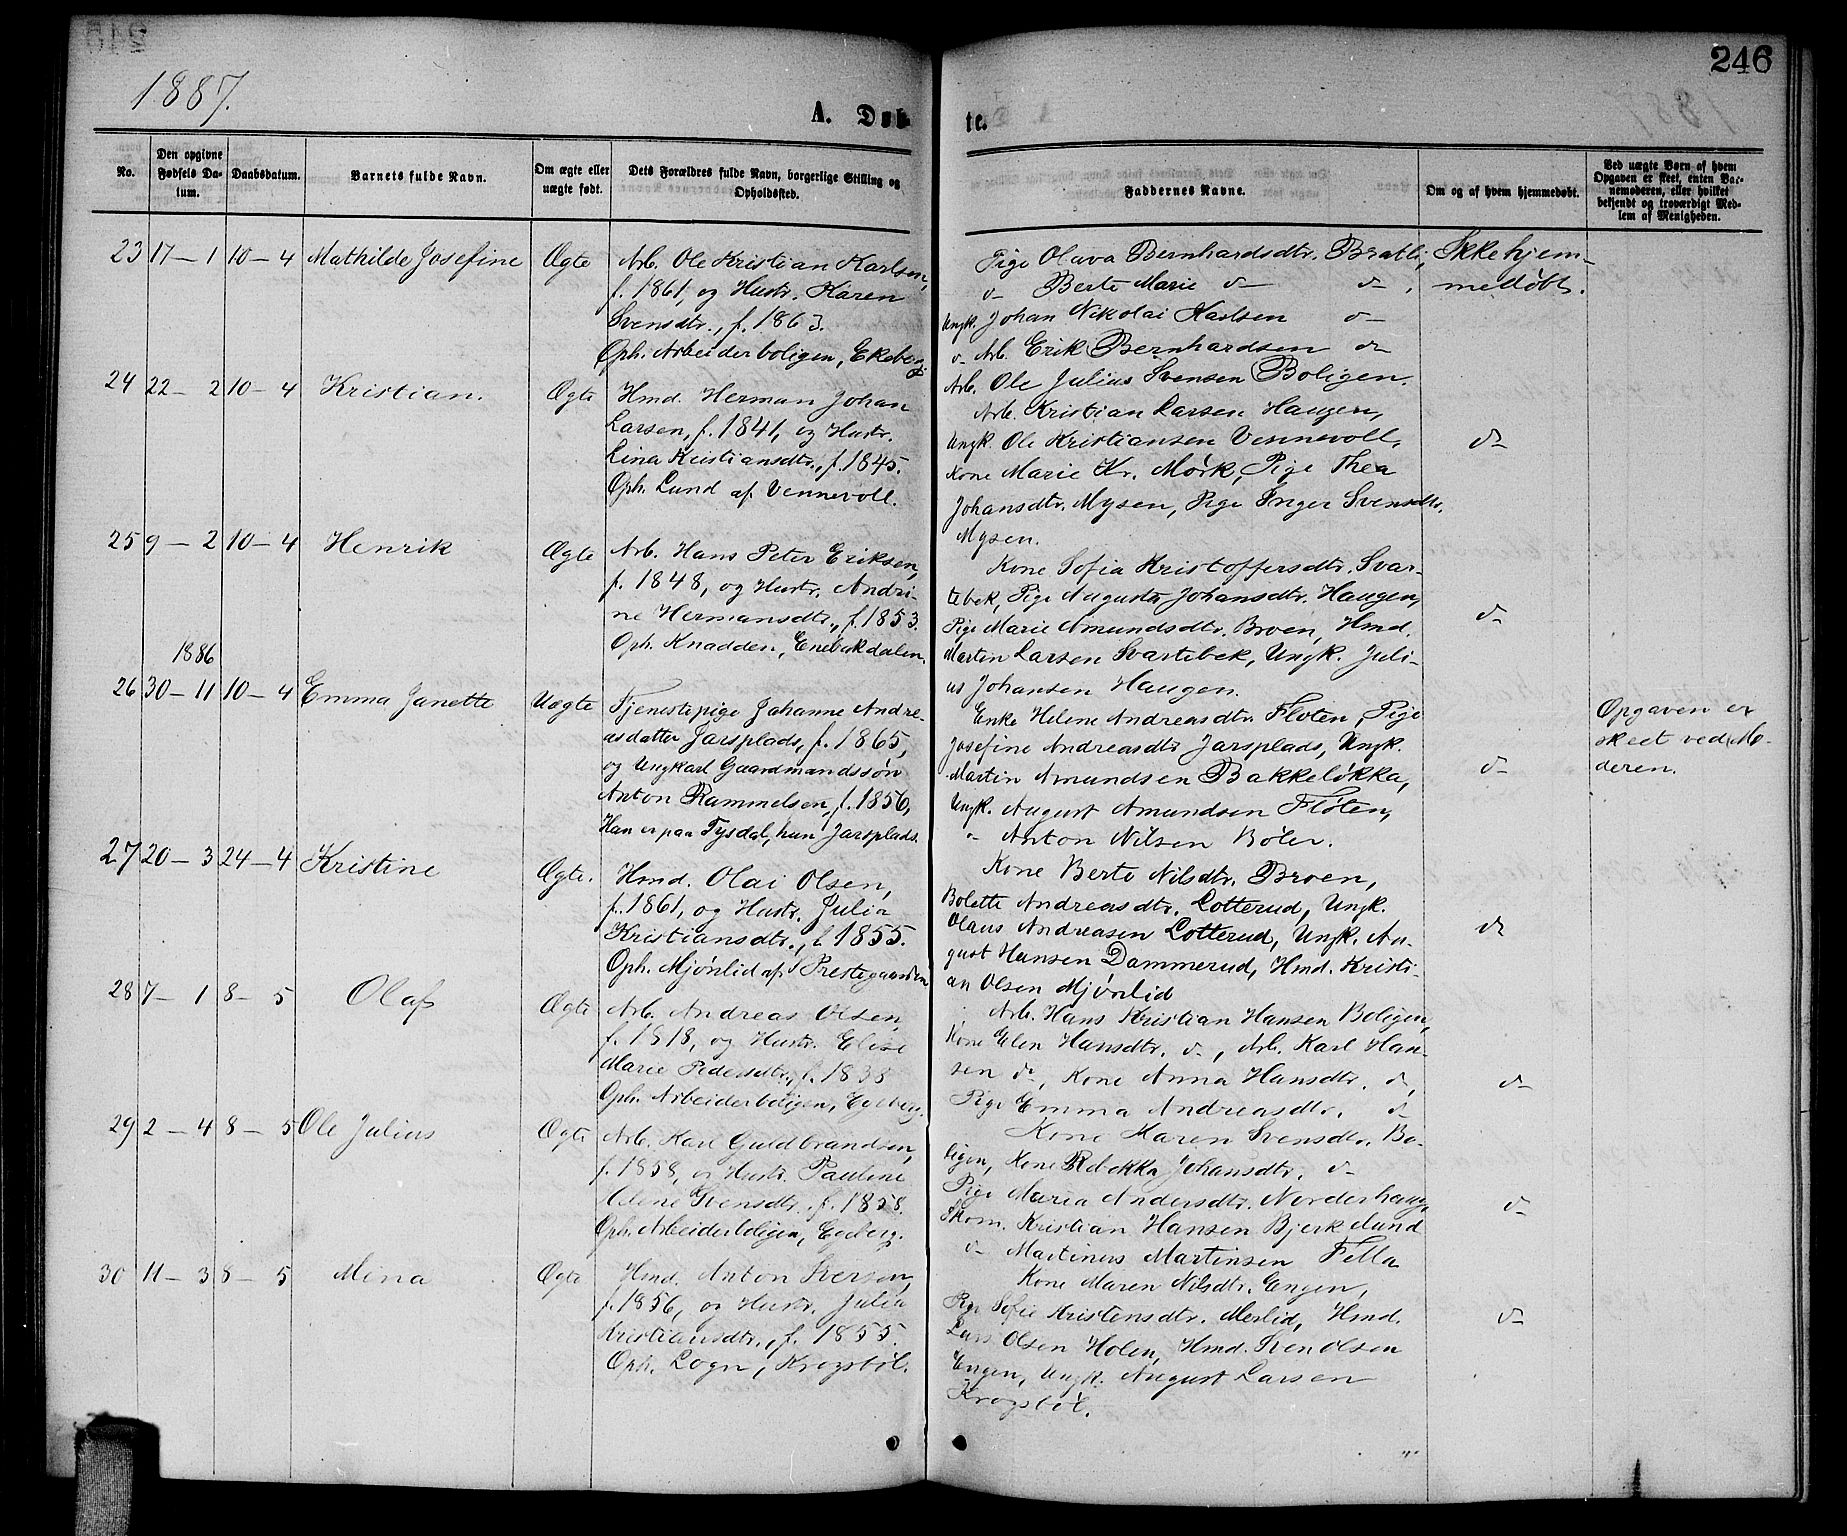 246
1887.
A. Døb-
te.
No.
Den opgivne Fødsels Da-tum.
Daabsdatum.
Barnets fulde Navn.
Om ægte eller uægte født.
Dets Forældres fulde Navn, borgerlige Stilling og Opholdssted.
Faddernes Navne.
Om og af hvem hjemmedøbt.
Ved uægte Børn af hvem Opgaven er skeet, enten Bar-nemoderen, eller hvilket bekjendt og troværdigt Med-lem af Menigheden.
23 17 – 1 10 – 4 Mathilde Josefine Ægte
Arb. Ole Kristian Karlsen,
f. 1861, og Hustr. Karen
Svensdtr., f. 1863.
Oph. Arbeiderboligen, Ekeberg
Pige Olava Bernhardsdtr. Bratli,
d– Berte Marie d– d– .
Ungk. Johan Nikolai Karlsen d–
d– Arb. Erik Bernhardsen d–
Arb. Ole Julius Svensen Boligen.
Ikke hjem-
medøbt.
24 22 – 2 10 – 4 Kristian. Ægte
Hmd. Herman Johan
Larsen, f. 1841, og Hustr.
Lina Kristiansdtr., f. 1845.
Oph. Lund af Vennevoll.
Arb. Kristian Larsen Haugen,
Ungk. Ole Kristiansen Vennevoll,
Kone Marie Kr. Mørk, Pige Thea
Johansdtr. Mysen, Pige Inger Svensdtr.
Mysen.
d–
25 9 – 2 10 – 4 Henrik Ægte
Arb. Hans Peter Eriksen,
f. 1848, og Hustr. Andri-
ne Hermansdtr., f. 1853.
Oph. Knadden, Enebakdalen.
Kone Sofia Kristoffersdtr. Svar-
tebek, Pige Augusta Johansdtr. Haugen,
Pige Marie Amundsdtr. Broen, Hmd.
Martin Larsen Svartebek, Ungk. Juli-
us Johansen Haugen.
d–
1886
26 30 – 11 10 – 4 Emma Janette Uægte
Tjenestepige Johanne Andre-
asdatter Jarsplads, f. 1865,
og Ungkarl Gaardmandssøn
Anton Rammelsen, f. 1856,
Han er paa Tysdal, hun Jarsplads.
Enke Helene Andreasdtr. Fløten, Pige
Josefine Andreasdtr Jarsplads, Ungk.
Martin Amundsen Bakkeløkka,
Ungk. August Amundsen Fløten,
– Anton Nilsen Bøler.
d–
Opgaven er
skeet ved Mo-
deren.
27 20 – 3 24 – 4 Kristine Ægte.
Hmd. Olai Olsen,
f. 1861, og Hustr. Julia
Kristiansdtr., f. 1855.
Oph. Mjønlid af Prestegaarden
Kone Berte Nilsdtr. Broen,
Bolette Andreasdtr. Lotterud, Ungk.
Olaus Andreasen Lotterud, Ungk. Au-
gust Hansen Dammerud, Hmd. Kristi-
an Olsen Mjønlid
d–
28 7 – 1 8 – 5 Olaf Ægte
Arb. Andreas Olsen,
f. 1818, og Hustr. Elise
Marie Pedersdtr., f. 1838
Oph. Arbeiderboligen, Egeberg.
Arb. Hans Kristian Hansen Boligen,
Kone Elen Hansdtr. d–, Arb. Karl Han-
sen d–, Kone Anna Hansdtr. d–,
Pige Emma Andreasdtr. d–
d–
29 2 – 4 8 – 5 Ole Julius Ægte
Arb. Karl Guldbrandsen,
f. 1858, og Hustr. Pauline
Svensdtr., f. 1858.
Oph. Arbeiderboligen, Egeberg.
Kone Maren Svensdtr. Bo-
ligen, Kone Rebekka Johansdtr. d–
Pige Maria Andersdtr. Norderhaug,
Skom. Kristian Hansen Bjerkelund
d– Martinus Martinsen Fella
d–
30 11 – 3 8 – 5 Mina Ægte
Hmd. Anton Iversen,
f. 1856, og Hustr. Julia
Kristiansdtr., f. 1855.
Oph. Logn, Krogsbøl.
Kone Maren Nilsdtr. Engen,
Pige Sofie Kristensdtr. Merlid, Hmd.
Lars Olsen Holen, Hmd. Sven Olsen
Engen, Ungk. August Larsen
Krogsbøl.
d–